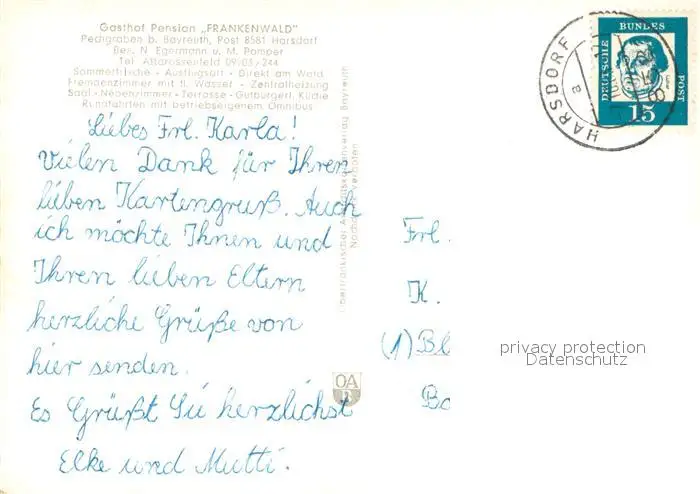 Gasthof Pension „FRANKENWALD"
Pechgraben b. Bayreuth, Post 8581 Harsdorf
Bes. N. Egermann u. M. Pamper
Tel. Altdrossenfeld 09203/244
Sommerfrische - Ausflugsort - Direkt am Wald
Fremdenzimmer mit fl. Wasser - Zentralheizung
Saal - Nebenzimmer - Terrasse - Gutbürgerl. Küche
Rundfahrten mit betriebseigenem Omnibus
Liebes Frl. Karla!
Vielen Dank für Ihren
lieben Kartengruß. Auch
ich möchte Ihnen und
Ihren lieben Eltern
herzliche Grüße von
hier senden.
Es Grüßt Sie herzlichst
Elke und Mutti.
Oberfränkischer Ansichtskartenverlag Bayreuth
Nachdruck verboten
OA
B
HARSDORF
a
DEUTSCHE
BUNDES
POST
15
Frl.
K.
(1) Bl
privacy protection
Datenschutz